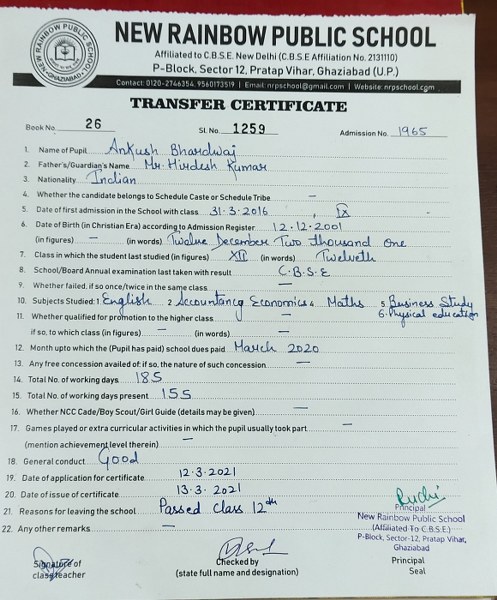 NEW RAINBOW PUBLIC SCHOOL
Affiliated to C.B.S.E. New Delhi (C.B.S.E Affiliation No. 2131110)
P-Block, Sector 12, Pratap Vihar, Ghaziabad (U.P.)
Contact: 0120-2746354, 9560173519 | Email: nrpschool@gmail.com | Website: nrpschool.com
NEW RAINBOW PUBLIC SCHOOL GHAZIABAD
TRANSFER CERTIFICATE
Book No. 26 Sl. No. 1259 Admission No. 1965
1. Name of Pupil Ankush Bhardwaj
2. Father's/Guardian's Name Mr. Hirdesh Kumar
3. Nationality Indian
4. Whether the candidate belongs to Schedule Caste or Schedule Tribe –
5. Date of first admission in the School with class 31.3.2016, IX
6. Date of Birth (in Christian Era) according to Admission Register 12.12.2001
(in figures) – (in words) Twelve December Two thousand One
7. Class in which the student last studied (in figures) XII (in words) Twelveth
8. School/Board Annual examination last taken with result C.B.S.E
9. Whether failed, if so once/twice in the same class –
10. Subjects Studied: 1 English 2 Accountancy Economics 4 Maths 5 Business Study
6. Physical education
11. Whether qualified for promotion to the higher class –
if so, to which class (in figures) – (in words) –
12. Month upto which the (Pupil has paid) school dues paid March 2020
13. Any free concession availed of: if so, the nature of such concession –
14. Total No. of working days 185
15. Total No. of working days present 155
16. Whether NCC Cade/Boy Scout/Girl Guide (details may be given) –
17. Games played or extra curricular activities in which the pupil usually took part –
(mention achievement level therein) –
18. General conduct Good
19. Date of application for certificate 12.3.2021
20. Date of issue of certificate 13.3.2021
21. Reasons for leaving the school Passed Class 12th
22. Any other remarks –
Ruchi
Principal
New Rainbow Public School
(Affiliated To C.B.S.E.)
P-Block, Sector-12, Pratap Vihar,
Ghaziabad
Signature of
class teacher
Checked by
(state full name and designation)
Principal
Seal